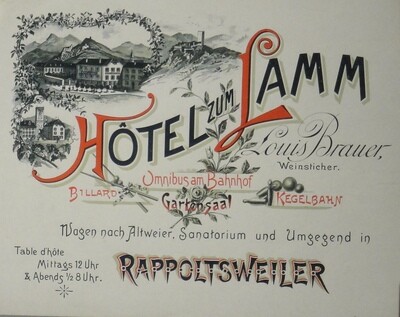 HÔTEL ZUM LAMM
Louis Brauer,
Weinsticher.
Omnibus am Bahnhof
BILLARD
Gartensaal
KEGELBAHN
Wagen nach Altweier, Sanatorium und Umgegend in
Table d'hôte
Mittags 12 Uhr
& Abends ½ 8 Uhr.
RAPPOLTSWEILER